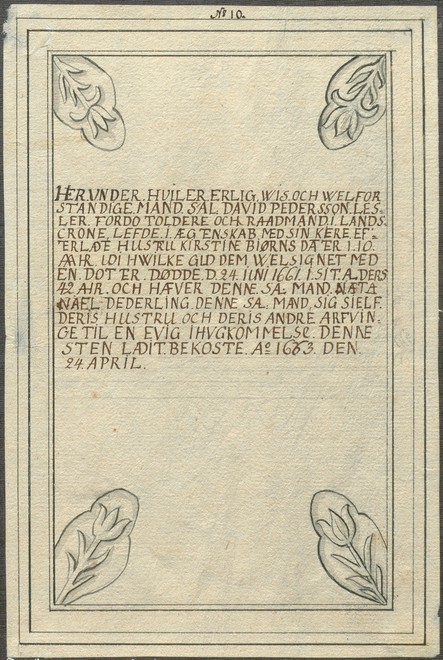 No 10.
HERUNDER. HUILER ERLIG, WIS. OCH WELFOR
STANDIGE. MAND. SAL DAVID PEDERSSON. LES-
LER. FORDO TOLDERE OCH RAADMAND I. LANDS-
CRONE, LEFDE. I. ÆGTENSKAB MED SIN KERE EF-
ERLADE HUSTRU KIRSTINE BIØRNS DATER I. 10.
AAHR. UDI HWILKE GUD DEM, WELSIGNET MED
EN. DOTER. DØDDE. D. 24. IUNI 1661. I. SIT. A. DERS
42 AHR. OCH HÆVER DENNE. SA. MAND. NATA
NAEL- DEDERLING. DENNE SA. MAND, SIG SIELF.
DERIS HUSTRU. OCH DERIS ANDRE ARFVIN-
GE TIL EN EVIG IHUGKOMMELSE. DENNE
STEN LADIT. BEKOSTE. Ao 1663. DEN.
24. APRIL.